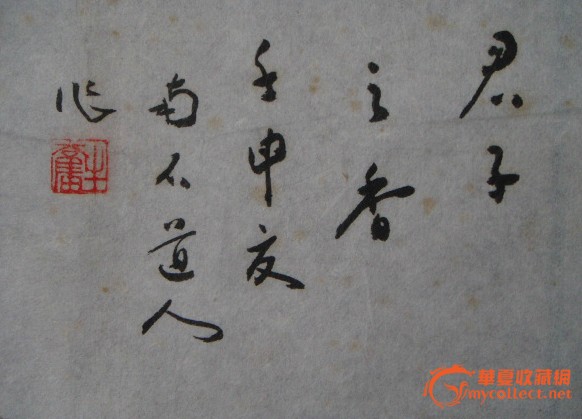 君子
之香
壬申夏
南石道人
作
華夏收藏網
mycollect.net